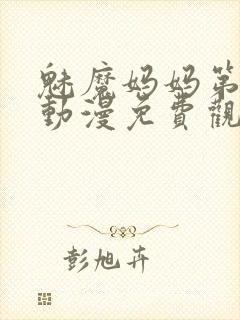 魅魔妈妈第
動漫免費觀
彭旭卉